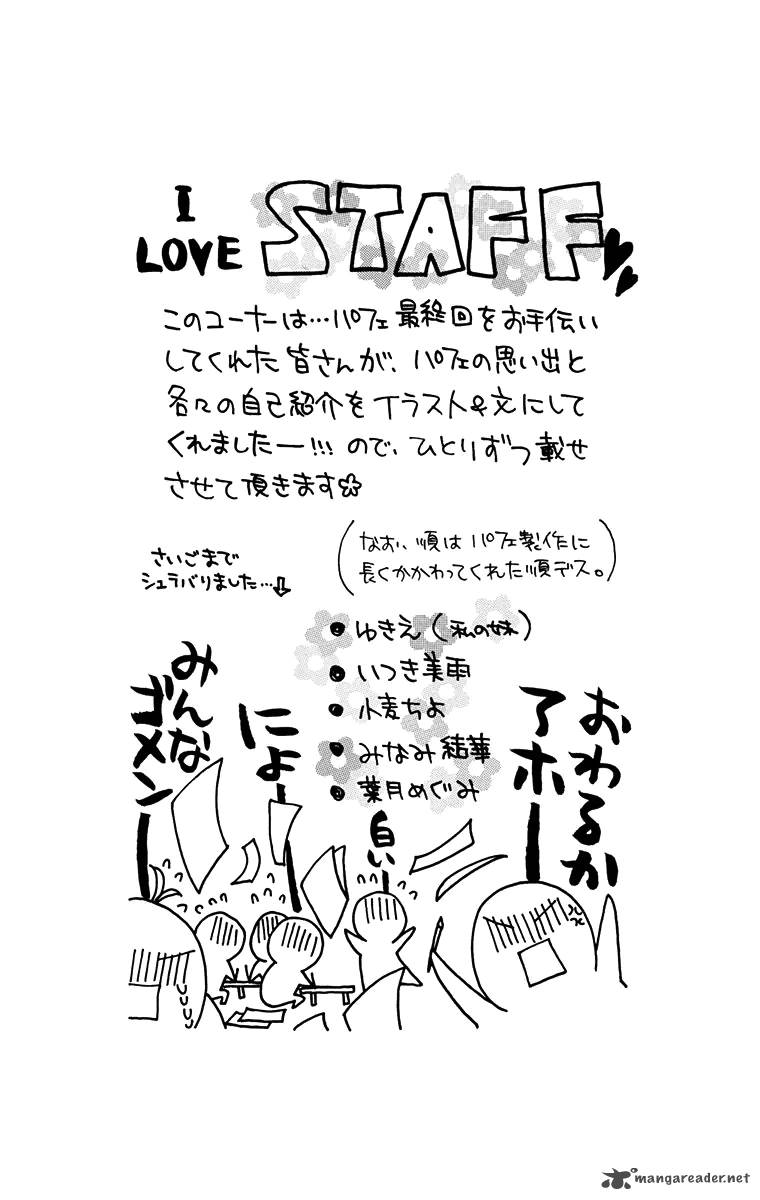 I
LOVE STAFF
このコーナーは…パフェ最終回をお手伝い
してくれた皆さんが、パフェの思い出と
各々の自己紹介をイラスト&文にして
くれましたー!!!ので、ひとりずつ載せ
させて頂きます☆
(なお、順はパフェ製作に
長くかかわってくれた順デス。)
さいごまで
シュラバりました…⇩
●ゆきえ(私の妹)
●いつき美雨
●小麦ちよ
●みなみ結華
●葉月めぐみ
おわるか
アホーー
白いー
にょーー
みんな
ゴメンーー
mangareader.net